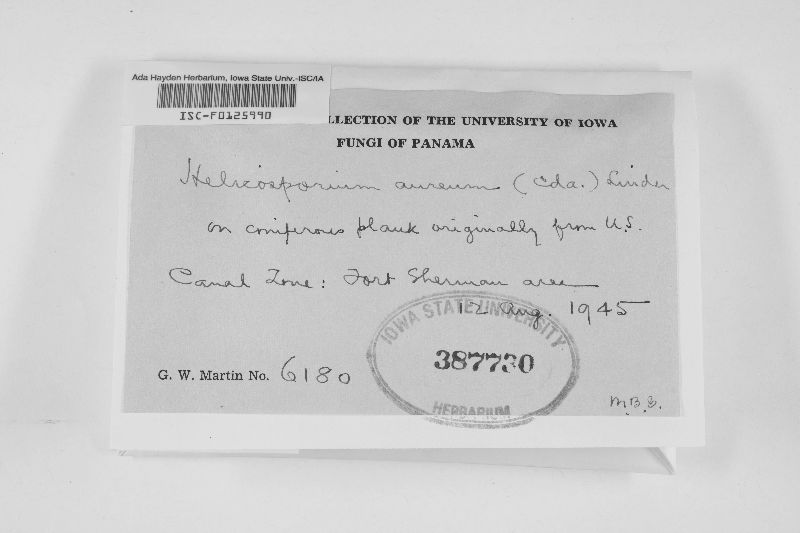 Ada Hayden Herbarium, Iowa State Univ.-ISC/IA
ISC-F0125990
LLECTION OF THE UNIVERSITY OF IOWA
FUNGI OF PANAMA
Helicosporium aureum (Cda.) Linder
on coniferous plank originally from U.S.
Canal Zone: Fort Sherman area
12 Aug. 1945
IOWA STATE UNIVERSITY
387730
HERBARIUM
G. W. Martin No. 6180
M.B.S.